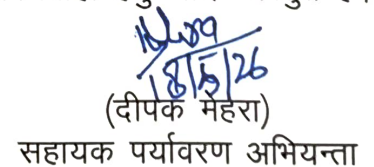 18/5/26
(दीपक मेहरा)
सहायक पर्यावरण अभियन्ता